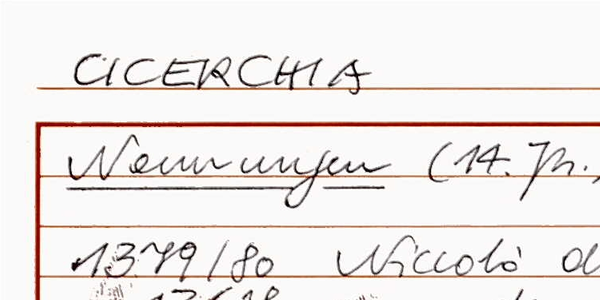 CICERCHIA
Nennungen (14. Jh.,
1379/80 Niccolò d